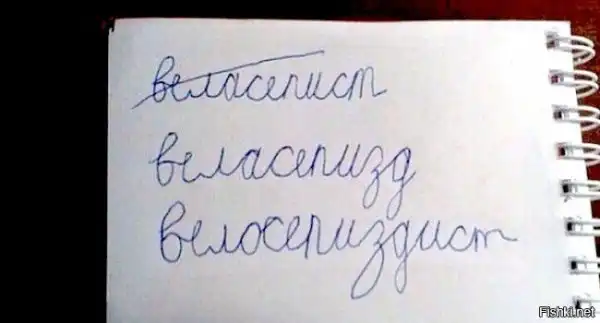 веласепист
веласепизд
велосепиздист
Fishki.net